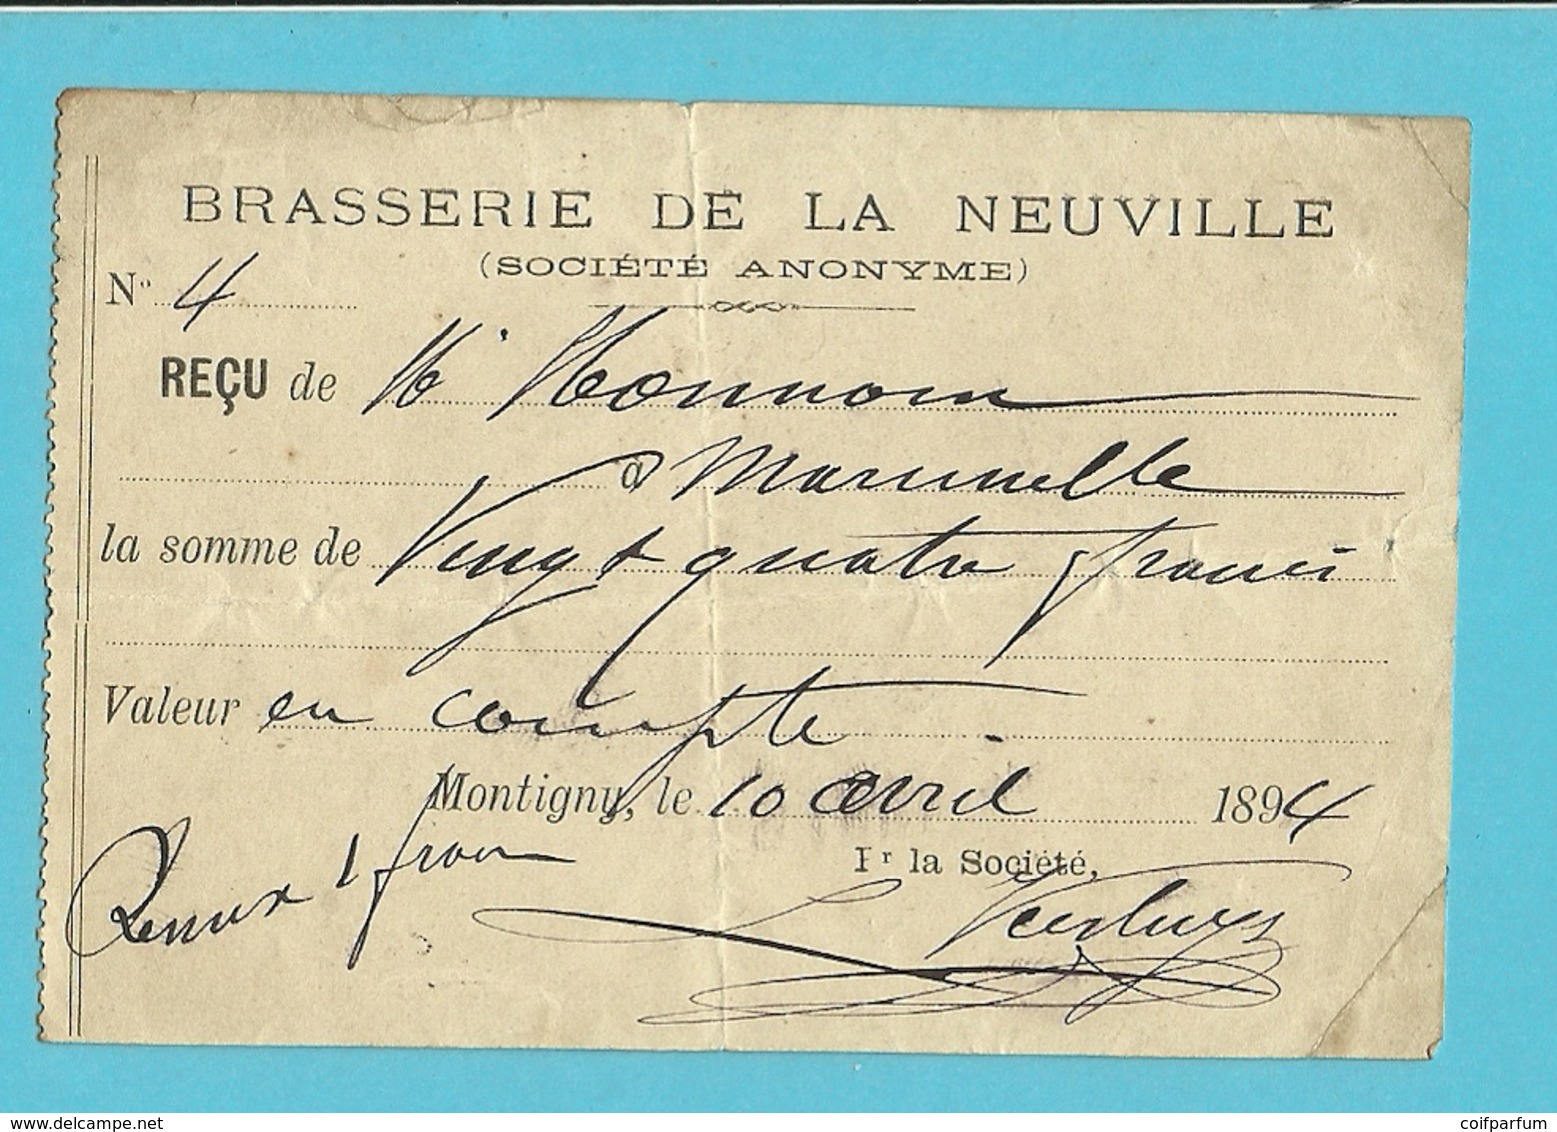 BRASSERIE DE LA NEUVILLE
(SOCIÉTÉ ANONYME)
N° 4
REÇU de Mr Monnom
à Marcinelle
la somme de Vingt quatre francs
Valeur en compte
Montigny, le 10 avril 1894
Remux 1 franc
Pr la Société,
delcampe.net
coifparfum